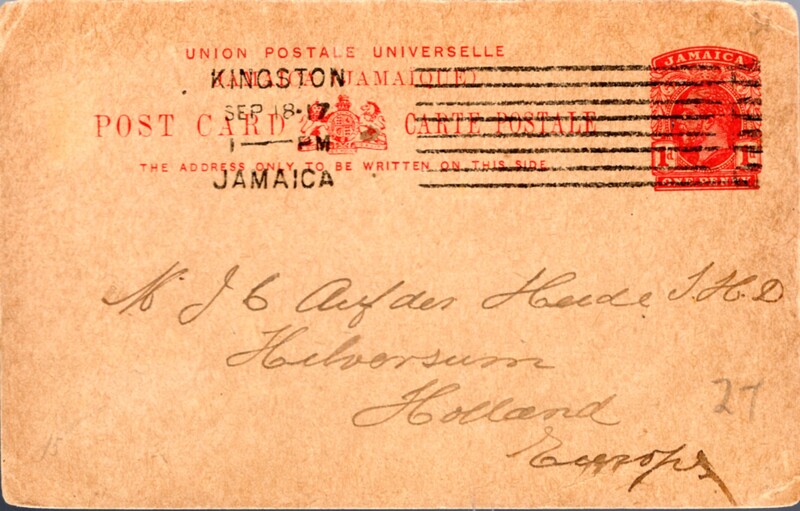 UNION POSTALE UNIVERSELLE
KINGSTON
(JAMAIQUE)
SEP 18·17
POST CARD CARTE POSTALE
1 PM
THE ADDRESS ONLY TO BE WRITTEN ON THIS SIDE
JAMAICA
JAMAICA
1d 1d
ONE PENNY
J C Auf der Heide J.H.D
Hilversum
Holland
Europe
27
15